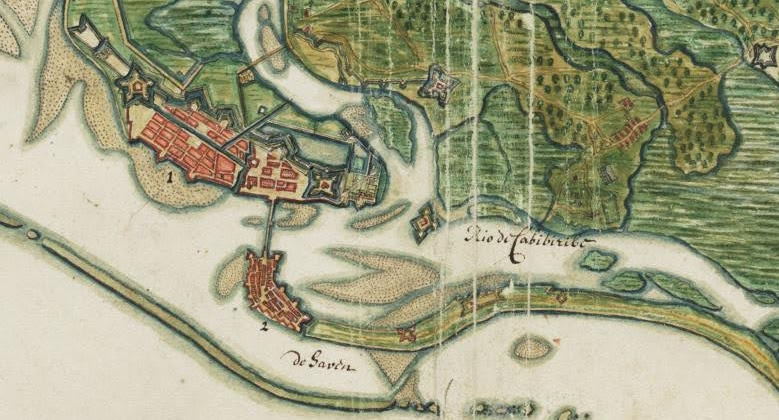 1
Rio de Cabibiribe
2
de Haven